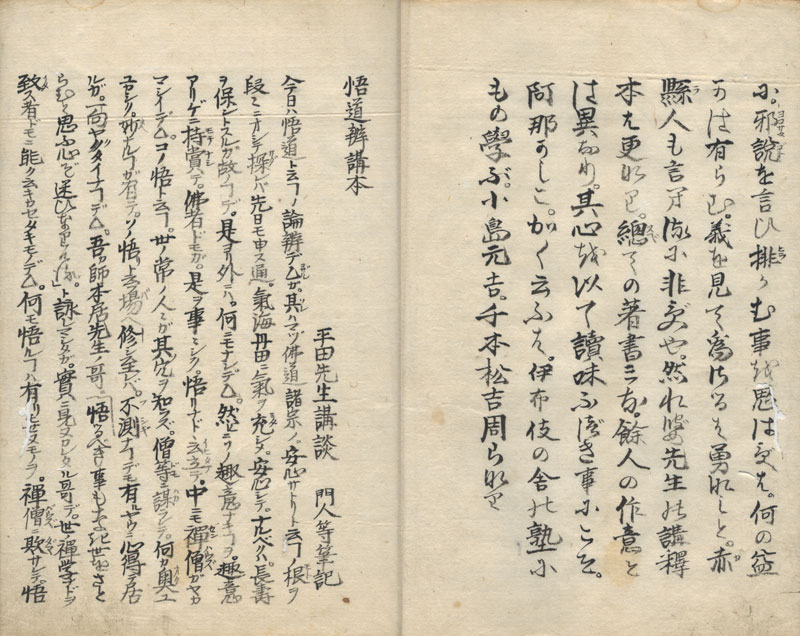 に。邪説を言ひ排かむ事を思はずは。何の益
かは有らむ。義を見て為ざるは勇なしと。赤
縣人も言はずに非ずや。然れば先生の講釋
本は更なり。總ての著書みな。餘人の作意と
は異なり。其心を以て讀味ふべき事にこそ。
阿那かしこ。かく云ふは。伊布伎の舎の塾に
もの學ぶ。小島元吉。千本松吉周らなり
悟道辨講本
平田先生講談 門人等筆記
今日ハ悟道ト云フノ論辨デムガ。其マヅ佛道諸宗ノ。安心サトリト云フノ根ヲ
段々ニオシテ探レバ先日モ申ス通。氣海丹田ニ氣ヲ充シメ。安心シテ。ナルベクハ。長壽
ヲ保トスルガ故ノヿデ。是ヨリ外ニハ。何ニモナイデム。然ルニソノ趣意ナキヿヲ。趣意
アリゲニ持賞テ。佛者ドモガ。是ヲ事々シク。悟リナドト云立テ。中ニモ禪僧ガヤカ
マシイデム。コノ悟ト云フヲ。世ノ常ノ人々ガ其究ヲ知ラズ。僧等ニ謀ラレテ。何カ奥ユ
カシク。妙ナルヿガ有テ。ソノ悟リト云場ヘ修シ至レバ。不測ナヿデモ有ルヤウニ心得テ居
ルガ。一向ヤクタイナヿデム。吾ガ師本居先生ノ哥ニ「悟るべき事もなき世をさと
らむと思ふ心ぞ迷ひなりける」ト詠レマシタガ。實ニ見スカシタル哥デ。世ノ禪學ナドヲ
致ス者ドモニ能ク云キカセタキモノデム。何モ悟ルヿハ有リ セヌモノヲ。禪僧ニ欺サレテ。悟